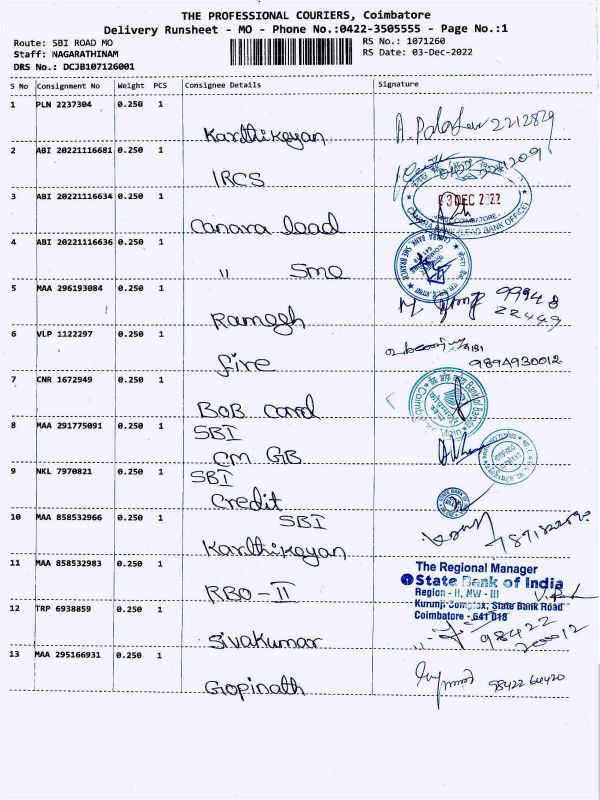 THE PROFESSIONAL COURIERS, Coimbatore
Delivery Runsheet - MO - Phone No.:0422-3505555 - Page No.:1
Route: SBI ROAD MO
RS No.: 1071260
Staff: NAGARATHINAM
RS Date: 03-Dec-2022
DRS No.: DCJB107126001
S No Consignment No Weight PCS Consignee Details Signature
1 PLN 2237304 0.250 1
Karthikeyan
2 ABI 20221116681 0.250 1
IRCS
3 ABI 20221116634 0.250 1
Canara lead
03 DEC 2022
4 ABI 20221116636 0.250 1
" SME
5 MAA 296193084 0.250 1
Ramesh 99948
22449
6 VLP 1122297 0.250 1
fire 9894930012
7 CNR 1672949 0.250 1
BOB card
8 MAA 291775091 0.250 1
SBI
CM GB
9 NKL 7970821 0.250 1
SBI
Credit
10 MAA 858532966 0.250 1
SBI
Karthikeyan
11 MAA 858532983 0.250 1
RBO-II
The Regional Manager
State Bank of India
Region - II, NW - III
Kurunji Complex, State Bank Road
Coimbatore - 641 018
12 TRP 6938859 0.250 1
Sivakumar 98422
20012
13 MAA 295166931 0.250 1
Gopinath